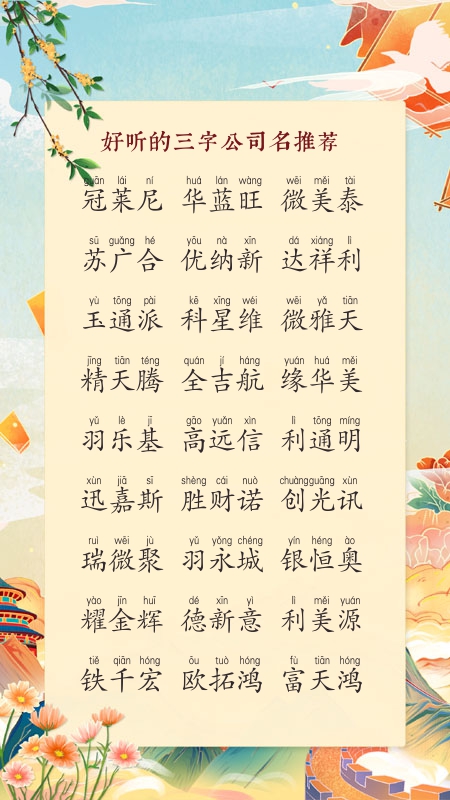 好听的三字公司名推荐
guān lái ní huá lán wàng wēi měi tài
冠莱尼 华蓝旺 微美泰
sū guǎng hé yōu nà xīn dá xiáng lì
苏广合 优纳新 达祥利
yù tōng pài kē xīng wéi wēi yǎ tiān
玉通派 科星维 微雅天
jīng tiān téng quán jí háng yuán huá měi
精天腾 全吉航 缘华美
yǔ lè jī gāo yuǎn xìn lì tōng míng
羽乐基 高远信 利通明
xùn jiā sī shèng cái nuò chuàng guāng xùn
迅嘉斯 胜财诺 创光讯
ruì wēi jù yǔ yǒng chéng yín héng ào
瑞微聚 羽永城 银恒奥
yào jīn huī dé xīn yì lì měi yuán
耀金辉 德新意 利美源
tiě qiān hóng ōu tuò hóng fù tiān hóng
铁千宏 欧拓鸿 富天鸿